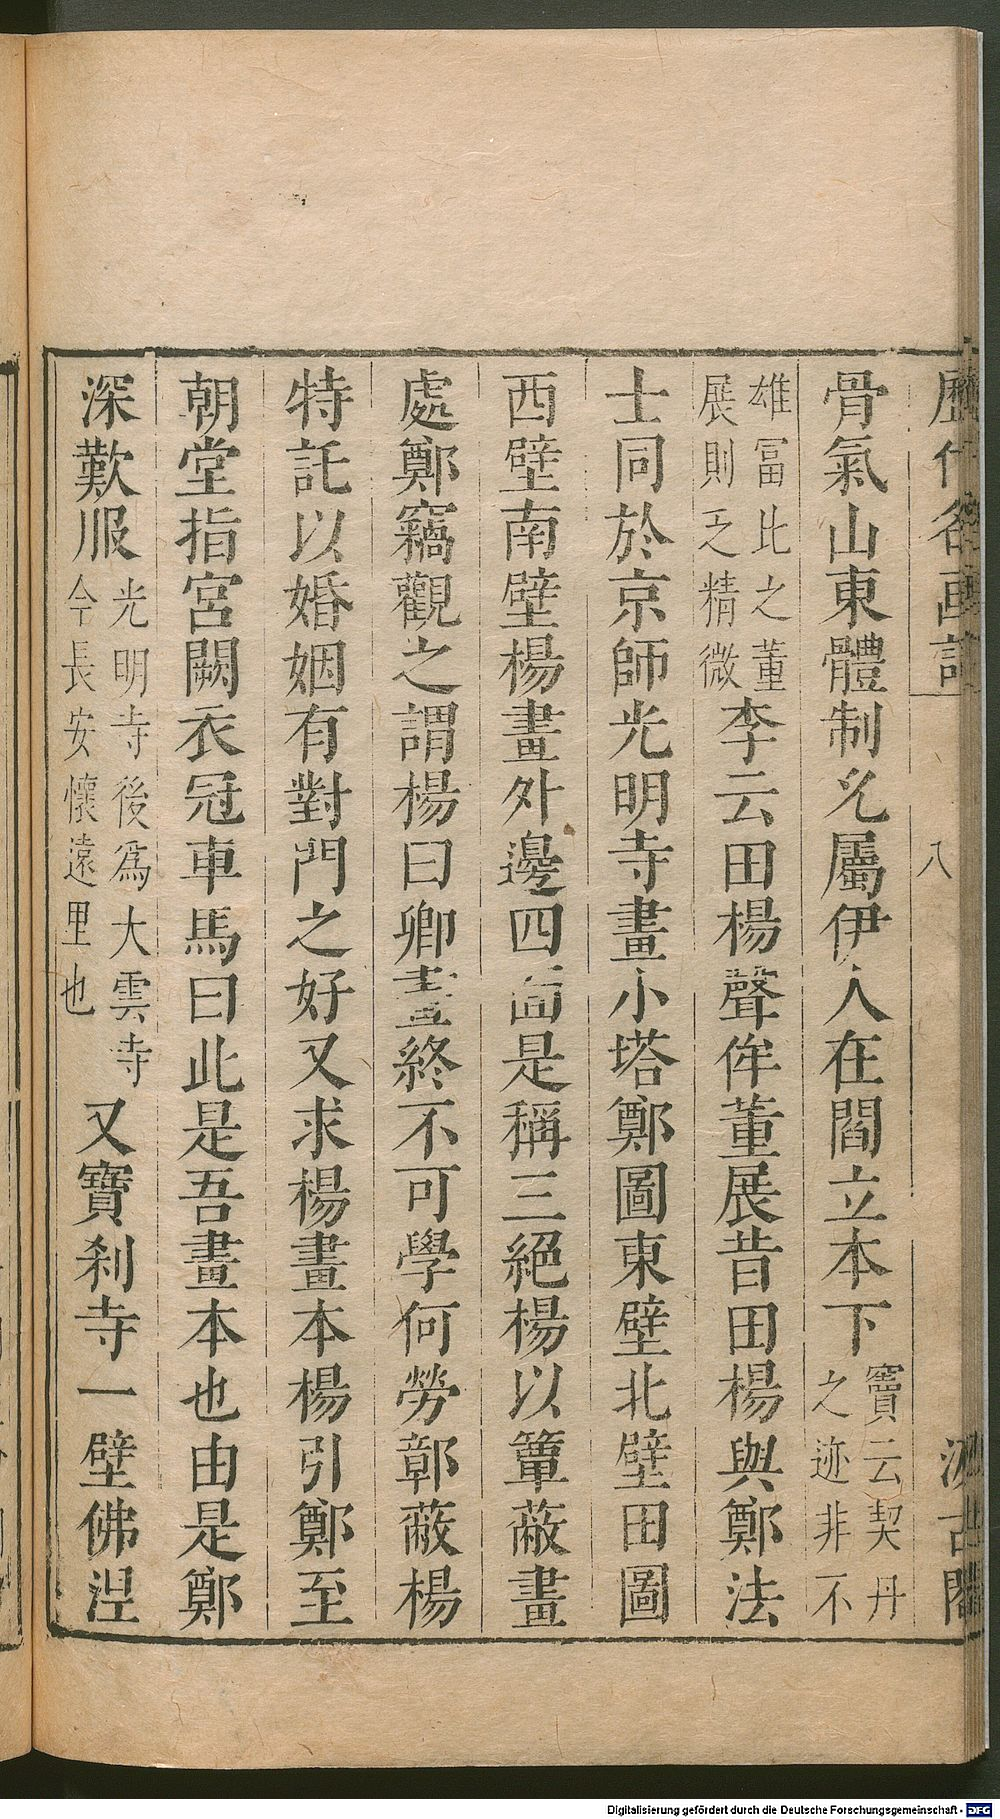 歷代名画記 八 汲古閣
骨氣山東體制允屬伊人在閻立本下竇云契丹之迹非不
雄冨此之董展則乏精微李云田楊聲侔董展昔田楊與鄭法
士同於京師光明寺畫小塔鄭圖東壁北壁田圖
西壁南壁楊畫外邊四面是稱三絕楊以簟蔽畫
處鄭竊觀之謂楊曰卿畫終不可學何勞鄣蔽楊
特託以婚姻有對門之好又求楊畫本楊引鄭至
朝堂指宮闕衣冠車馬曰此是吾畫本也由是鄭
深歎服光明寺後爲大雲寺今長安懷遠里也又寶刹寺一壁佛涅
Digitalisierung gefördert durch die Deutsche Forschungsgemeinschaft - DFG